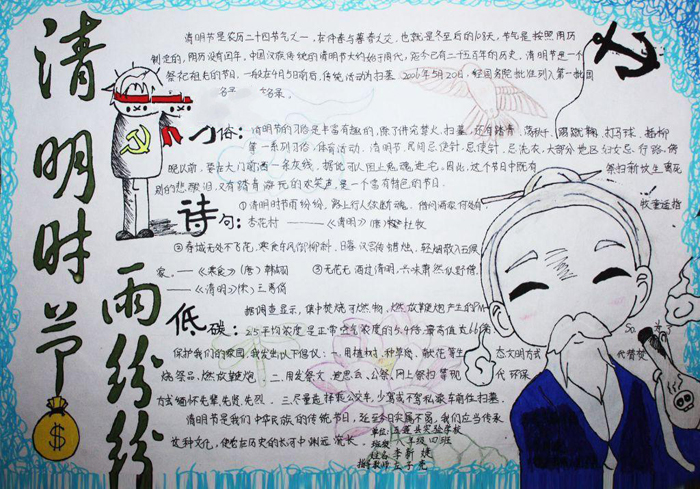 清明时节
雨纷纷
清明节是农历二十四节气之一，在仲春与暮春之交，也就是冬至后的108天，节气是按照阳历
制定的，阳历没有闰年，中国汉族传统的清明节大约始于周代，距今已有二千五百年的历史，清明节是一个
祭祀祖先的节日，一般在4月5日前后，传统活动为扫墓 2006年5月20日，经国务院批准列入第一批国
名录
习俗：清明节的习俗是丰富有趣的，除了讲究禁火、扫墓，还有踏青、荡秋千、蹴鞠、打马球、插柳
等一系列习俗、体育活动。清明节，民间忌使针，忌洗衣，大部分地区妇女忌行路，傍
晚以前，要在大门前洒一条灰线，据说可以阻止鬼魂进宅。因此，这个节日中既有 祭扫新坟生离死
别的悲酸泪，又有踏青游玩的欢笑声，是一个富有特色的节日。
诗句：①清明时节雨纷纷，路上行人欲断魂。借问酒家何处有， 牧童遥指
杏花村 ——《清明》唐 杜牧
②春城无处不飞花，寒食东风御柳斜，日暮汉宫传蜡烛，轻烟散入五侯
家。——《寒食》（唐）韩翃 ③无花无酒过清明，兴味萧然似野僧。
——《清明》（宋）王禹偁
低碳：据调查显示，集中焚烧可燃物，燃放鞭炮产生的PM
2.5平均浓度是正常空气浓度的5.4倍，最高值达66
保护我们的家园，我发出以下倡议：一.用植树、种草、献花等生 态文明方式 代替焚
烧祭品、燃放鞭炮 二.用发祭文、 公祭、网上祭扫等现 代环保
方式缅怀先辈、先贤、先烈、 三.尽量选择乘公交车，少驾或不驾私家车前往扫墓。
清明节是我们中华民族的传统节日，延至今日实属不易，我们应当传承
这种文化，使它在历史的长河中渊远流长。
单位：五莲县实验学校
班级： 年级四班
姓名：李新婕
指导教师：
$